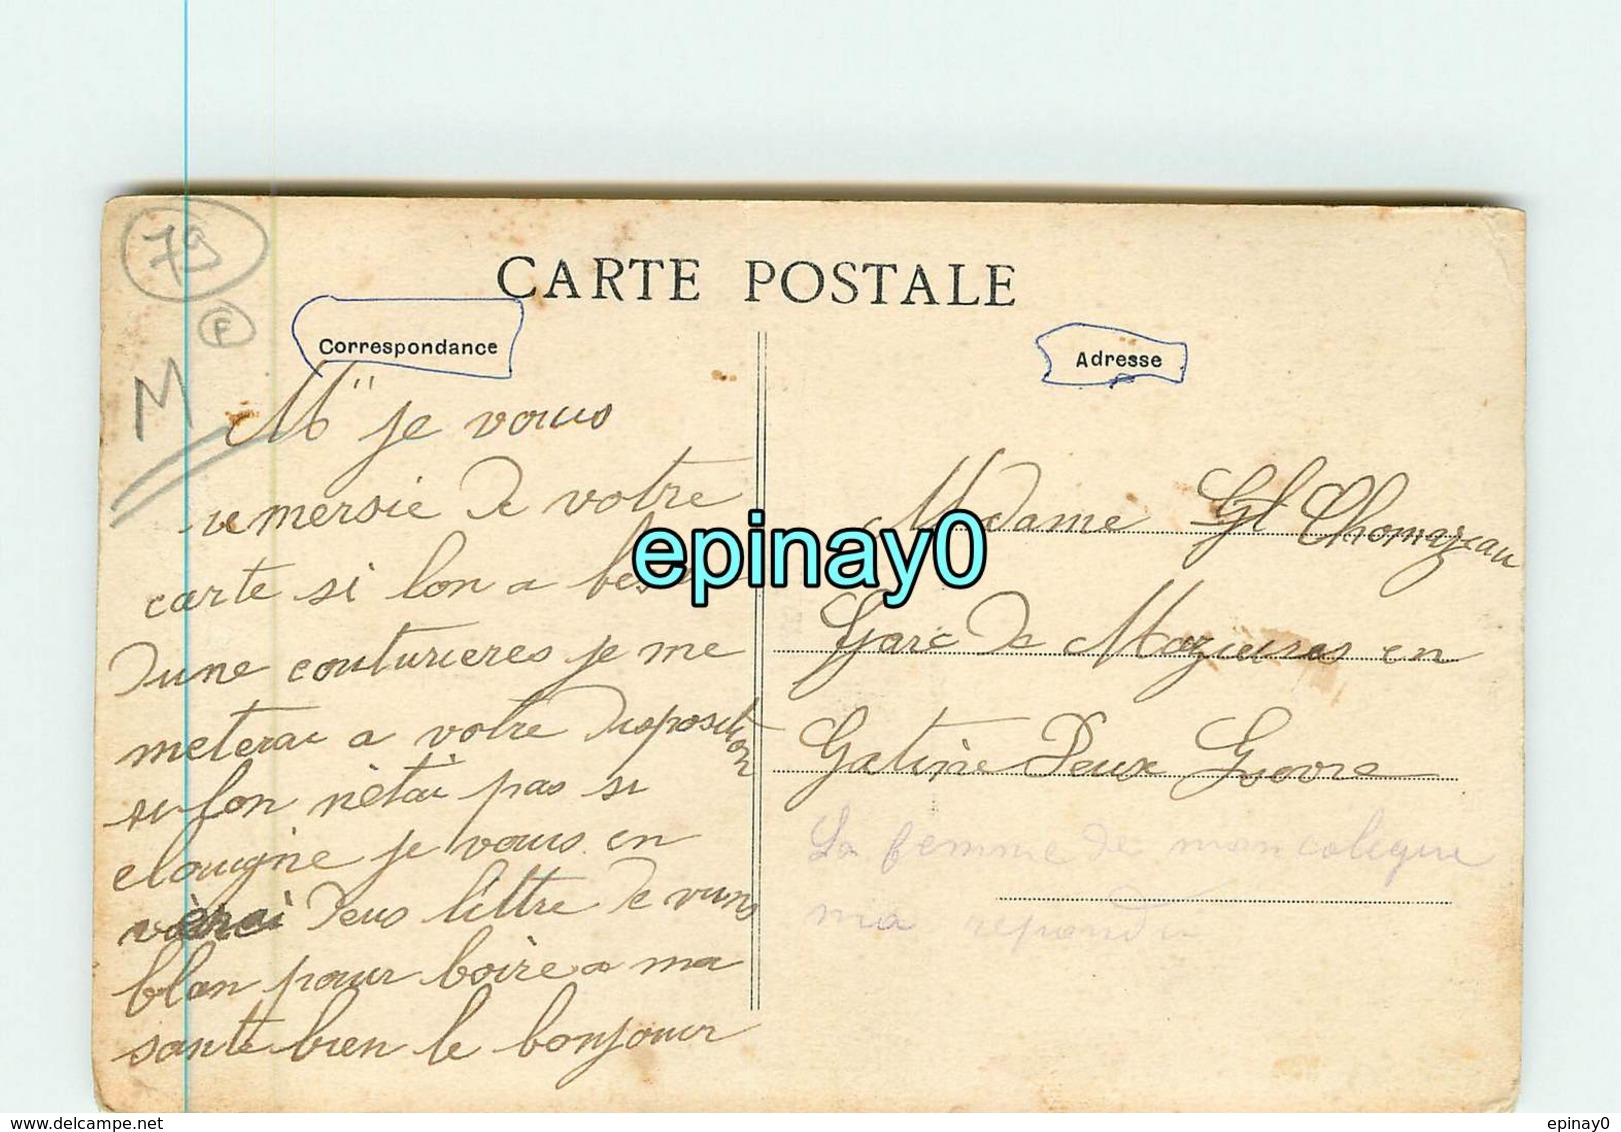 79
F
M
CARTE POSTALE
Correspondance
Adresse
M" je vous
remersie de votre
carte si lon a
dune couturieres je me
meterai a votre disposition
si lon nètai pas si
elougne je vous en
vèrai deus littre de
blan pour boire a ma
santé bien le bonjour
Madame Gl Thomazeau
Gare de Mazieres en
Gatine Deux Sevre
La femme de mon colegue
ma repondu
epinay0
epinay0